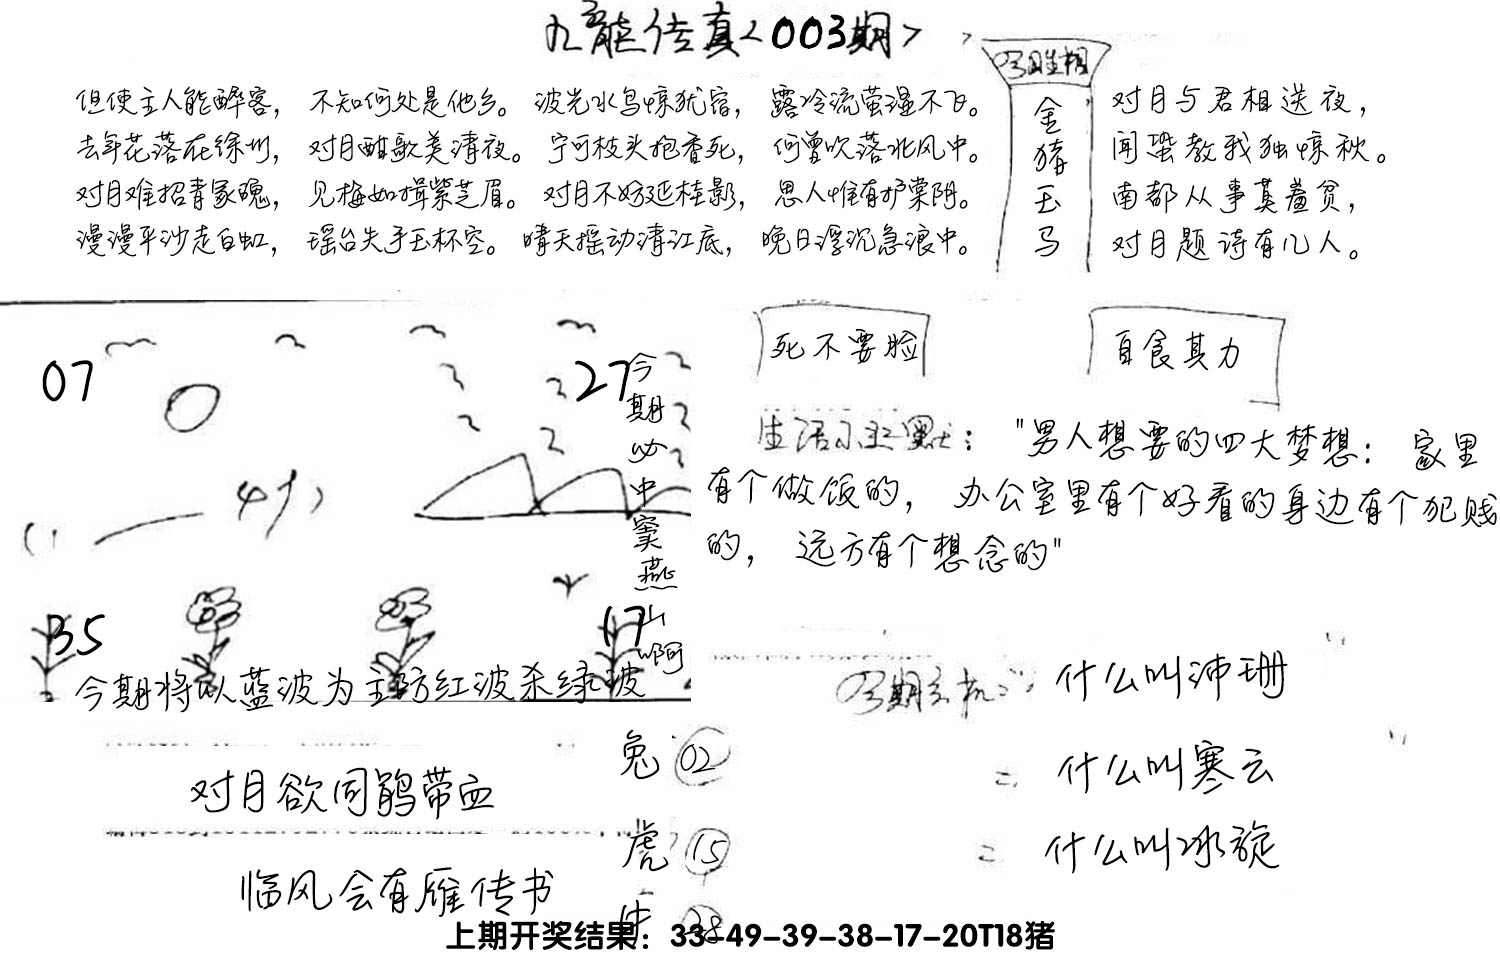 九龙传真<003期>
但使主人能醉客， 不知何处是他乡。 波光水鸟惊犹宿， 露冷流萤湿不飞。
去年花落在徐州， 对月酣歌美清夜。 宁可枝头抱香死， 何曾吹落北风中。
对月难招青冢魂， 见梅如揖紫芝眉。 对月不妨延桂影， 思人惟有护棠阴。
漫漫平沙走白虹， 瑶台失手玉杯空。 晴天摇动清江底， 晚日浮沉急浪中。
金猪玉马
对月与君相送夜，
闻蛩教我独惊秋。
南都从事莫羞贫，
对月题诗有几人。
07
27
35
17
今期必中窦燕山啊
今期将以蓝波为主防红波杀绿波
死不要脸
自食其力
生活幽默： "男人想要的四大梦想： 家里
有个做饭的， 办公室里有个好看的身边有个犯贱
的， 远方有个想念的"
什么叫沛珊
什么叫寒云
什么叫冰旋
对月欲同鹃带血
临风会有雁传书
兔 02
虎 15
牛 28
上期开奖结果：33-49-39-38-17-20T18猪